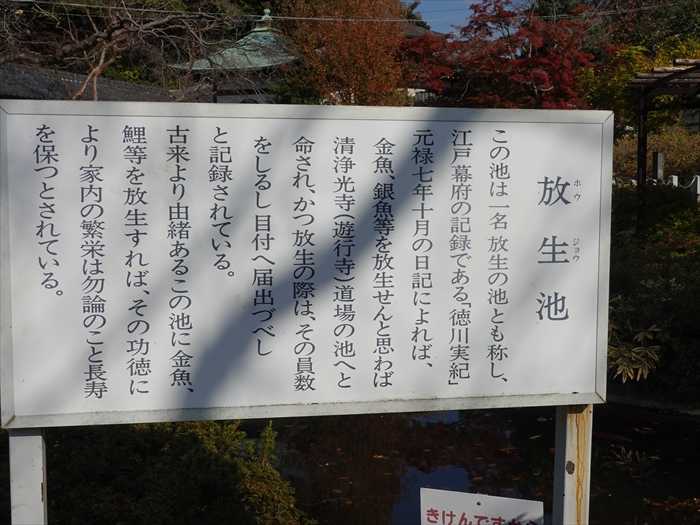 放生池
ホウ ジョウ
この池は一名 放生の池とも称し、
江戸幕府の記録である「徳川実紀」
元禄七年十月の日記によれば、
金魚、銀魚等を放生せんと思わば
清浄光寺(遊行寺)道場の池へと
命され、かつ放生の際は、その員数
をしるし目付へ届出づべし
と記録されている。
古来より由緒あるこの池に金魚、
鯉等を放生すれば、その功徳に
より家内の繁栄は勿論のこと長寿
を保つとされている。
きけんです